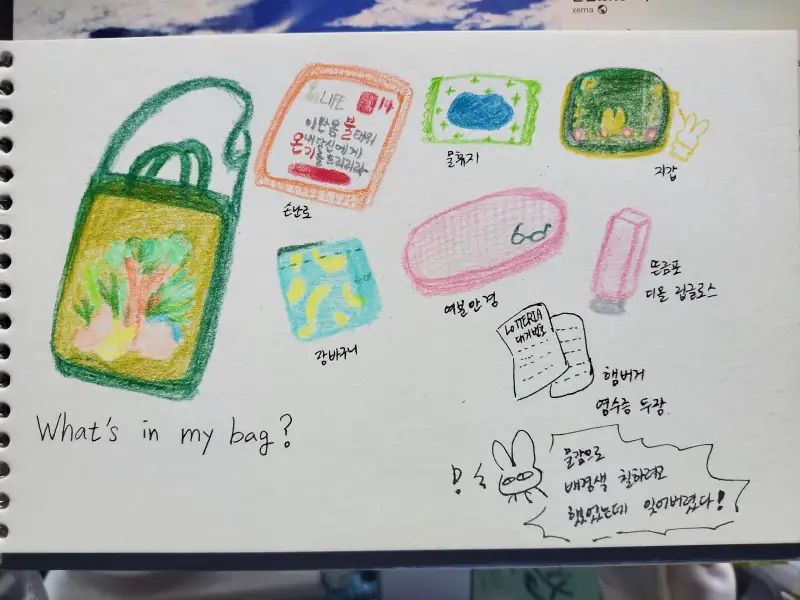 xema
LIFE 14
이한몸 불태워
내당신에게
온기를 드리리라
손난로
물휴지
지갑
장바구니
여분안경
뜬금포
디올 립글로스
LOTTERIA
대기번호
햄버거
영수증 두장.
What's in my bag?
물감으로
배경색 칠하려고
했었는데 잊어버렸다!